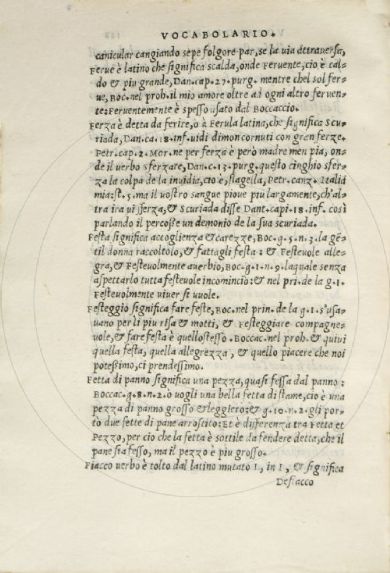 VOCABOLARIO.
canicular cangiando sepe folgore par, se la uia dttrauersa,
Ferue è latino che significa scalda, onde Feruente, cio è cal-
do & piu grande, Dan. cap. 27. purg. mentre chel sol fer-
ue, Boc. nel proh. il mio amore oltre ad ogni altro seruen-
te: Feruentemente è spesso usato dal Boccaccio.
Ferza è detta da ferire, ò a Ferula latina, che significa Scu-
riada, Dan. ca. 18. inf. uidi dimon cornuti con gran ferze.
Petr. cap. 2. Mor. ne per ferza è però madre men pia, on-
de il uerbo sferzare, Dan. ca. 13. purg. questo cinghio sfer-
za la colpa de la inuidia, cio è, flagella, Petr. canz. Italia
mia: st. 5. ma il uostro sangue pioue piu largamente, ch'al-
tra ira ui sferza, & Scuriada disse Dant. capi. 18. inf. così
parlando il percosse un demonio de la sua scuriada.
Festa significa accoglienza & carezze, Boc. g. 5. n. 3. la gẽ-
til donna raccoltolo, & fattagli festa: & Festeuole alle-
gra, & Festeuolmente auerbio, Boc. g. 1. n. 9. laquale senza
aspettarlo tutta festeuole incominciò: & nel pri. de la g. 1.
Festeuolmente uiuer si uuole.
Festeggio significa fare feste, Boc. nel prin. de la g. 1. s'usa-
uano per li piu risa & motti, & Festeggiare compagne-
uole, & fare festa è quellostesso Boccac. nel proh. & quiui
quella festa, quella allegrezza, & quello piacere che noi
potessimo, ci prendessimo.
Fetta di panno significa una pezza, quasi fessa dal panno:
Boccac. g. 8. n. 2. o uogli una bella fetta di stame, cio è una
pezza di panno grosso & leggiero: & g. 10. n. 2. gli por-
tò due fette di pane arrostito: Et è differenza tra Fetta et
Pezzo, per cio che la fetta è sottile da fendere detta, che il
pane sia fesso, ma il pezzo è piu grosso.
Fiacco uerbo è tolto dal latino mutato L, in I, & significa
Desiacco